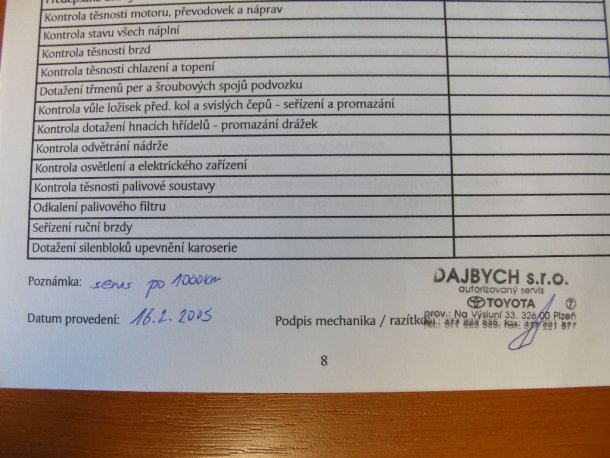 Kontrola těsnosti motoru, převodovek a náprav
Kontrola stavu všech náplní
Kontrola těsnosti brzd
Kontrola těsnosti chlazení a topení
Dotažení třmenů per a šroubových spojů podvozku
Kontrola vůle ložisek před. kol a svislých čepů - seřízení a promazání
Kontrola dotažení hnacích hřídelů - promazání drážek
Kontrola odvětrání nádrže
Kontrola osvětlení a elektrického zařízení
Kontrola těsnosti palivové soustavy
Odkalení palivového filtru
Seřízení ruční brzdy
Dotažení silenbloků upevnění karoserie
Poznámka: servis po 1000km
DAJBYCH s.r.o.
autorizovaný servis
TOYOTA 7
prov.: Na Výsluní 33, 326 00 Plzeň
Datum provedení: 16.2.2005
Podpis mechanika / razítko
8